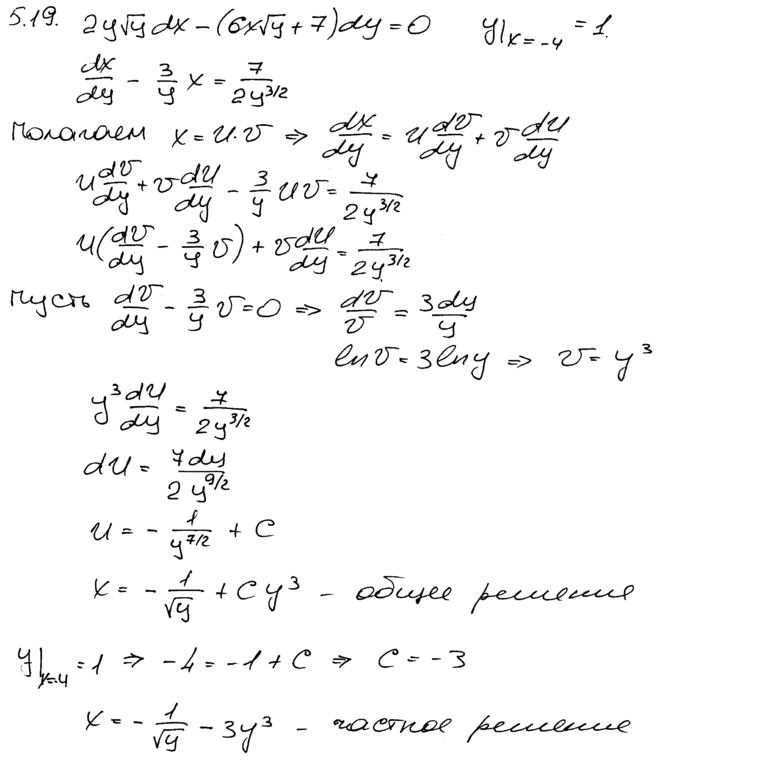 5.19. 2y√y dx − (6x√y + 7)dy = 0 y|ₓ₌₋₄ = 1.
dx/dy − 3/y x = 7/(2y^(3/2))
Полагаем x = u·v ⇒ dx/dy = u dv/dy + v du/dy
u dv/dy + v du/dy − 3/y uv = 7/(2y^(3/2))
u(dv/dy − 3/y v) + v du/dy = 7/(2y^(3/2))
Пусть dv/dy − 3/y v = 0 ⇒ dv/v = 3dy/y
ln v = 3 ln y ⇒ v = y³
y³ du/dy = 7/(2y^(3/2))
du = 7dy/(2y^(9/2))
u = − 1/y^(7/2) + C
x = − 1/√y + Cy³ − общее решение
y|ₓ₌₋₄ = 1 ⇒ −4 = −1 + C ⇒ C = −3
x = − 1/√y − 3y³ − частное решение